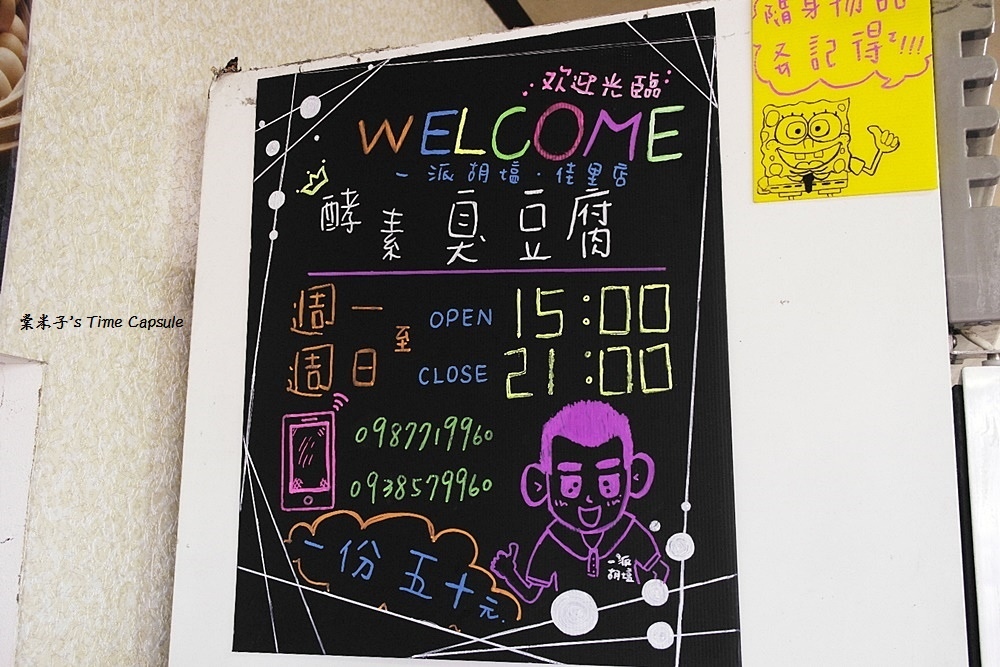 隨身物品
要記得!!!
欢迎光臨
WELCOME
一派胡塭·佳里店
酵素臭豆腐
週一 至 週日
OPEN 15:00
CLOSE 21:00
0987719960
0938579960
一份五十元.
一派
胡塭
棠米子's Time Capsule